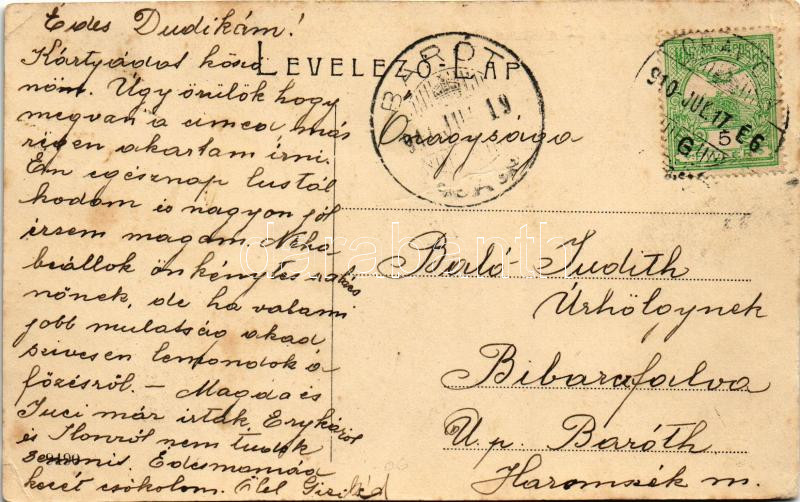 Édes Dudikám!
Kártyádat kösz
nöm. Úgy örülök hogy
megvan a címed más
rigen akartam írni.
Én egésznap lustál
kodom és nagyon jól
érzem magam. Néha
beállok önkéntes szakács
nőnek, de ha valami
jobb mulatság akad
szivesen lemondok a
főzésről. – Magda és
Juci már irtak,
és Ilonról nem tudok
semmit. Édesmamád
kezét csókolom. Ölel
LEVELEZŐ-LAP
BARÓT
19
910 JUL 17 E6
5
Őnagysága
Barló Judith
Úrhölgynek
Bibarcfalva
U. p. Baróth
Háromszék m.
9190
darabanth